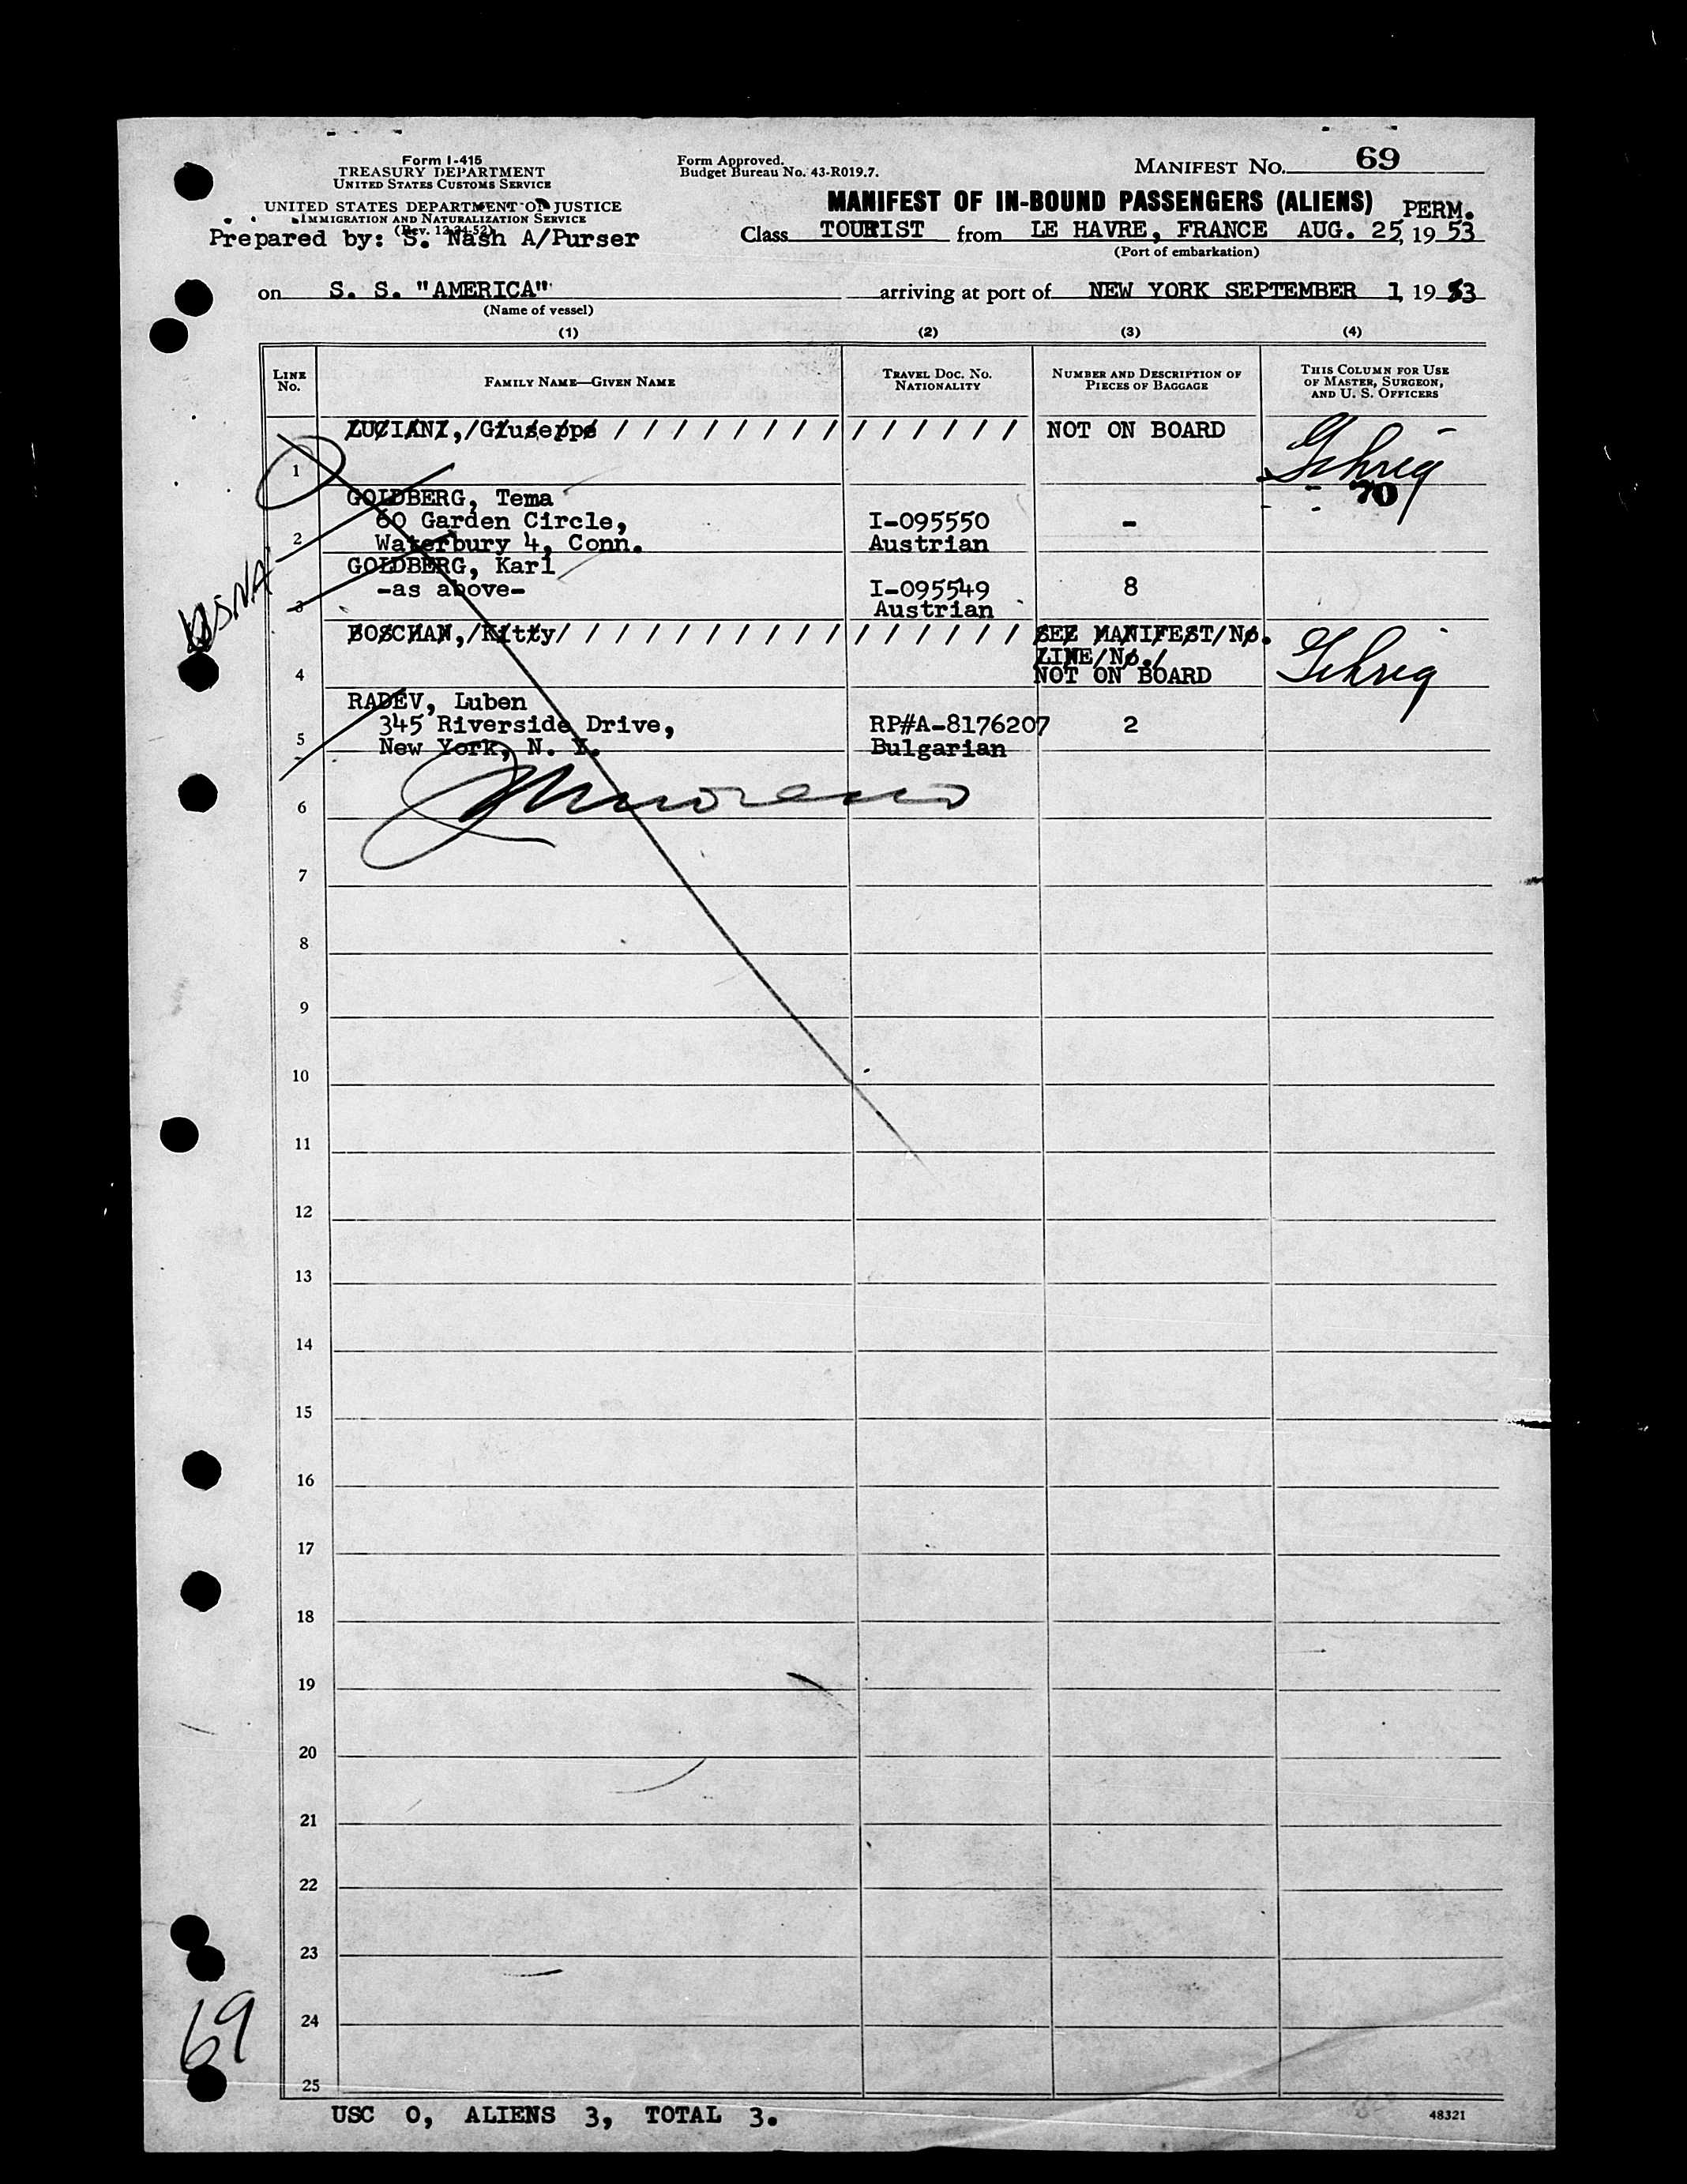 Form I-415
TREASURY DEPARTMENT
UNITED STATES CUSTOMS SERVICE
UNITED STATES DEPARTMENT OF JUSTICE
IMMIGRATION AND NATURALIZATION SERVICE
(Rev. 12-24-52)
Prepared by: S. Nash A/Purser
Form Approved.
Budget Bureau No. 43-R019.7.
MANIFEST No. 69
MANIFEST OF IN-BOUND PASSENGERS (ALIENS) PERM.
Class TOURIST from LE HAVRE, FRANCE AUG. 25, 19 53
(Port of embarkation)
on S. S. "AMERICA" arriving at port of NEW YORK SEPTEMBER 1, 19 53
(Name of vessel)
(1) (2) (3) (4)
LINE No. FAMILY NAME—GIVEN NAME TRAVEL DOC. NO. NATIONALITY NUMBER AND DESCRIPTION OF PIECES OF BAGGAGE THIS COLUMN FOR USE OF MASTER, SURGEON, AND U. S. OFFICERS
LUCIANI,/Giuseppe / / / / / / / / / / / / / / NOT ON BOARD Gehrig
1
70
GOLDBERG, Tema
60 Garden Circle, I-095550 -
2 Waterbury 4, Conn. Austrian
GOLDBERG, Karl
-as above- I-095549 8
3 Austrian
BOSCHAN,/Kitty/ / / / / / / / / / / / / / / / SEE MANIFEST/No.
LINE/No./ Gehrig
4 NOT ON BOARD
RADEV, Luben
345 Riverside Drive, RP#A-8176207 2
5 New York, N. Y. Bulgarian
6
7
8
9
10
11
12
13
14
15
16
17
18
19
20
21
22
23
24
25
69
USC 0, ALIENS 3, TOTAL 3.
48321